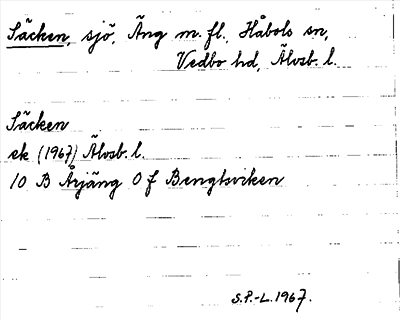 Säcken, sjö, Äng m. fl., Håbols sn,
Vedbo hd, Älvsb. l.
Säcken
ek (1967) Älvsb. l.
10 B Årjäng O f Bengtsviken
S.P.-L. 1967.